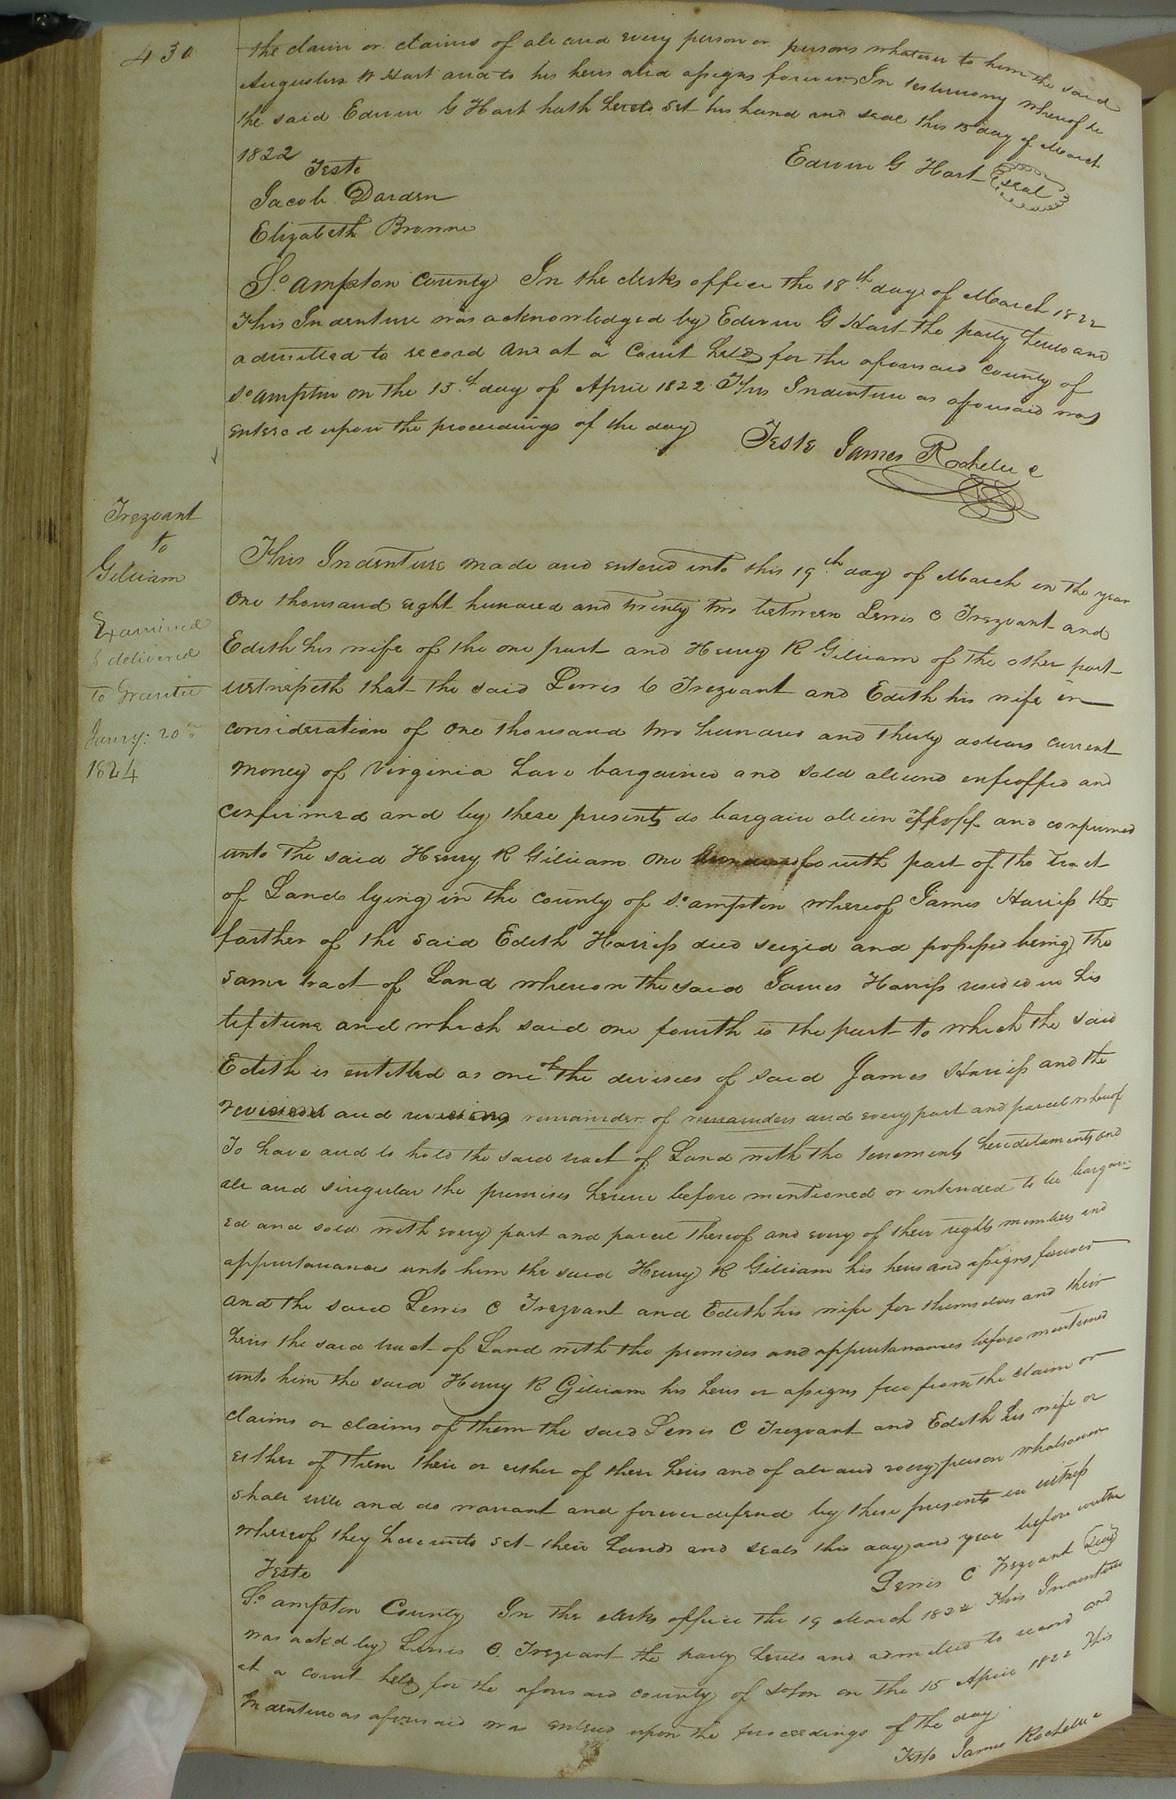 430
the claim or claims of all and every person or persons whatever to him the said
Augustus W Hart and to his heirs and assigns forever, In testimony whereof he
the said Edwin G Hart hath hereto set his hand and seal this 15 day of March
1822
Teste
Edwin G Hart Seal
Jacob Darden
Elizabeth Browne
So.ampton County In the clerks office the 18th day of March 1822
This Indenture was acknowledged by Edwin G Hart the party hereto and
admitted to record and at a Court held for the aforesaid county of
So.ampton on the 15th day of April 1822 This Indenture as aforesaid was
entered upon the proceedings of the day
Teste James Rochelle
Trezvant
to
Gilliam
Examined
& delivered
to Grantee
Jany: 20th
1824
This Indenture made and entered into this 19th day of March in the year
One thousand eight hundred and twenty two between Lewis C Trezvant and
Edith his wife of the one part and Henry R Gilliam of the other part
witnesseth that the said Lewis C Trezvant and Edith his wife in
consideration of one thousand two hundred and thirty dollars current
money of Virginia have bargained and sold aliend enfeoffed and
confirmed and by these presents do bargain alien and confirmed
unto the said Henry R Gilliam one fourth part of the tract
of Land lying in the county of So.ampton whereof James Harriss the
farther of the said Edith Harriss died seized and possessed being the
same tract of Land whereon the said James Harriss resided in his
lifetime and which said one fourth is the part to which the said
Edith is entitled as one of the devisees of said James Harriss and the
remainder of remainders and every part and parcel whereof
To have and to hold the said tract of Land with the tenements hereditaments and
all and singular the premises herein before mentioned or intended to be bargain-
ed and sold with every part and parcel thereof and every of their rights members and
appurtenances unto him the said Henry R Gilliam his heirs and assigns forever
and the said Lewis C Trezvant and Edith his wife for themselves and their
heirs the said tract of Land with the premises and appurtenances before mentioned
unto him the said Henry R Gilliam his heirs or assigns free from the claim or
claims or claims of them the said Lewis C Trezvant and Edith his wife or
either of them their or either of their heirs and of all and every person whatsoever
shall will and do warrant and forever defend by these presents in witness
whereof they hereunto set their hands and seals this day and year before written
Teste
Lewis C Trezvant Seal
So.ampton County In the clerks office the 19 March 1822 This Indenture
was ackd by Lewis C. Trezvant the party hereto and admitted to record and
at a court held for the aforesaid county of Soton on the 15 April 1822 This
Indenture as aforesaid was entered upon the proceedings of the day
Teste James Rochelle